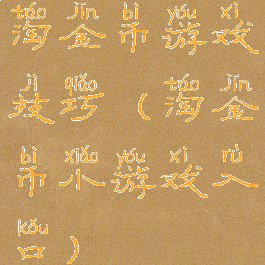 táo jīn bì yóu xì
淘金币游戏
jì qiǎo táo jīn
技巧（淘金
bì xiǎo yóu xì rù
币小游戏入
kǒu
口）